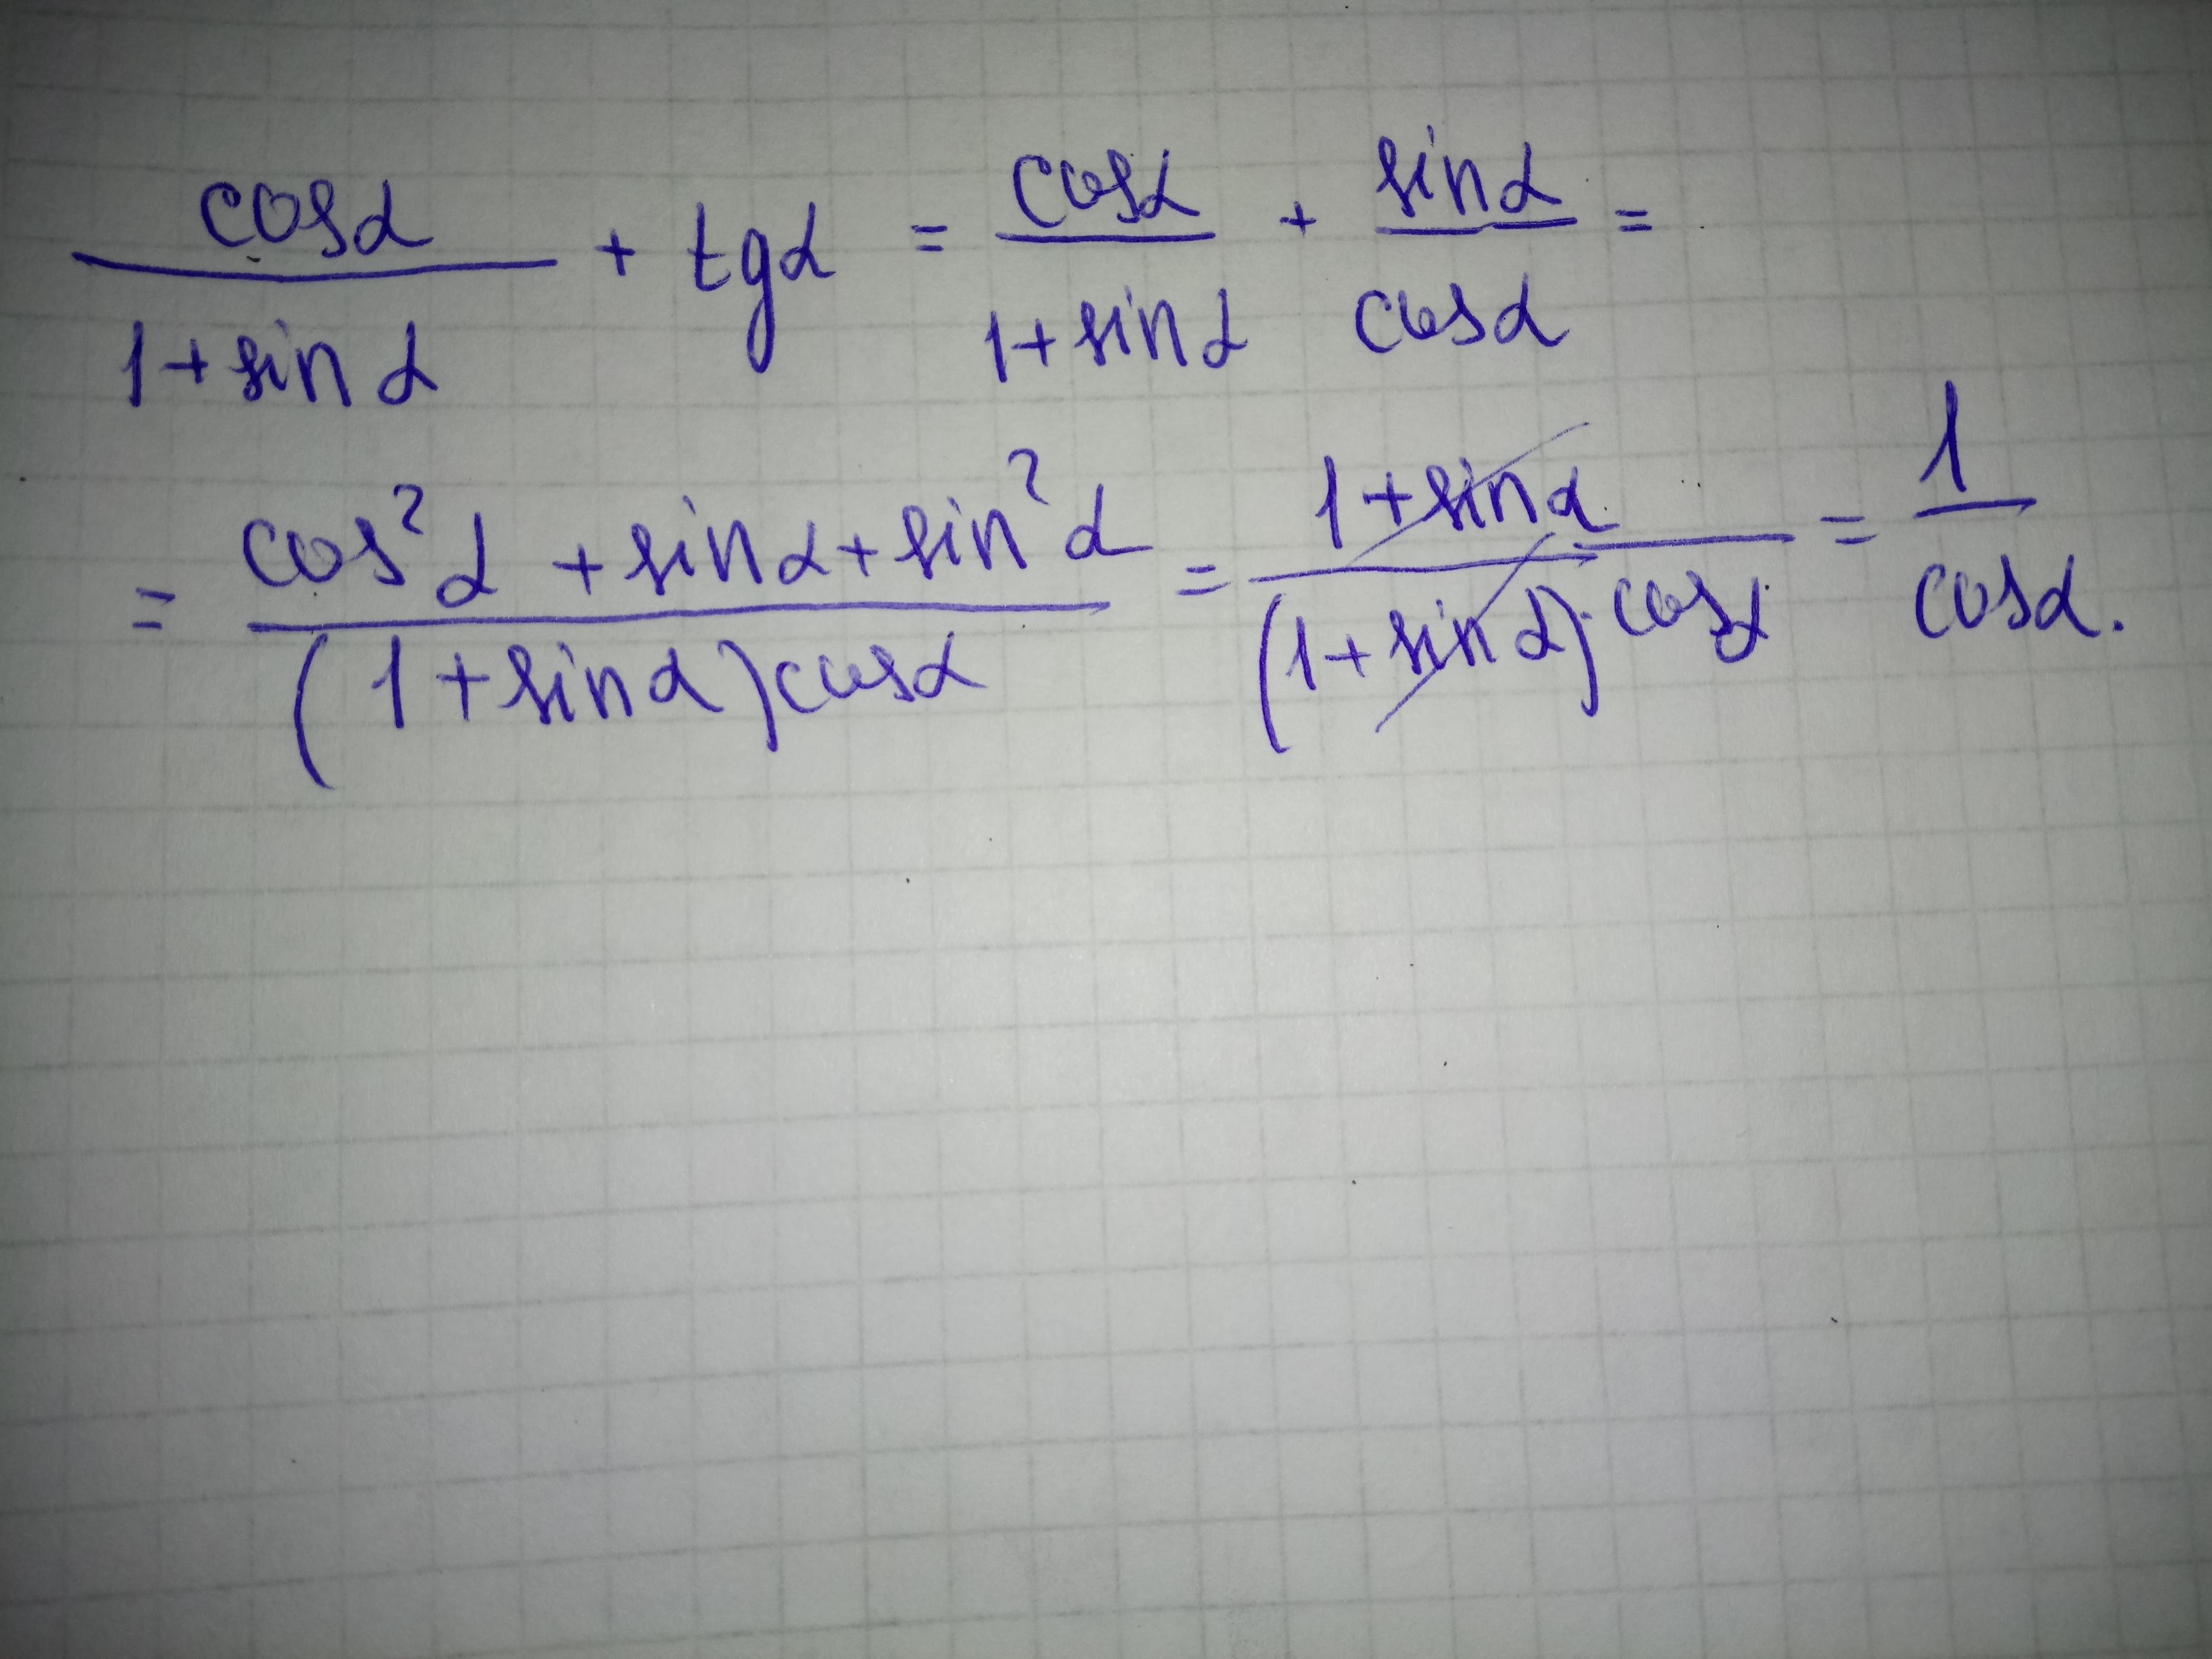 cosα/(1+sinα) + tgα = cosα/(1+sinα) + sinα/cosα =
= (cos²α + sinα + sin²α)/((1+sinα)cosα) = (1+sinα)/((1+sinα)·cosα) = 1/cosα.